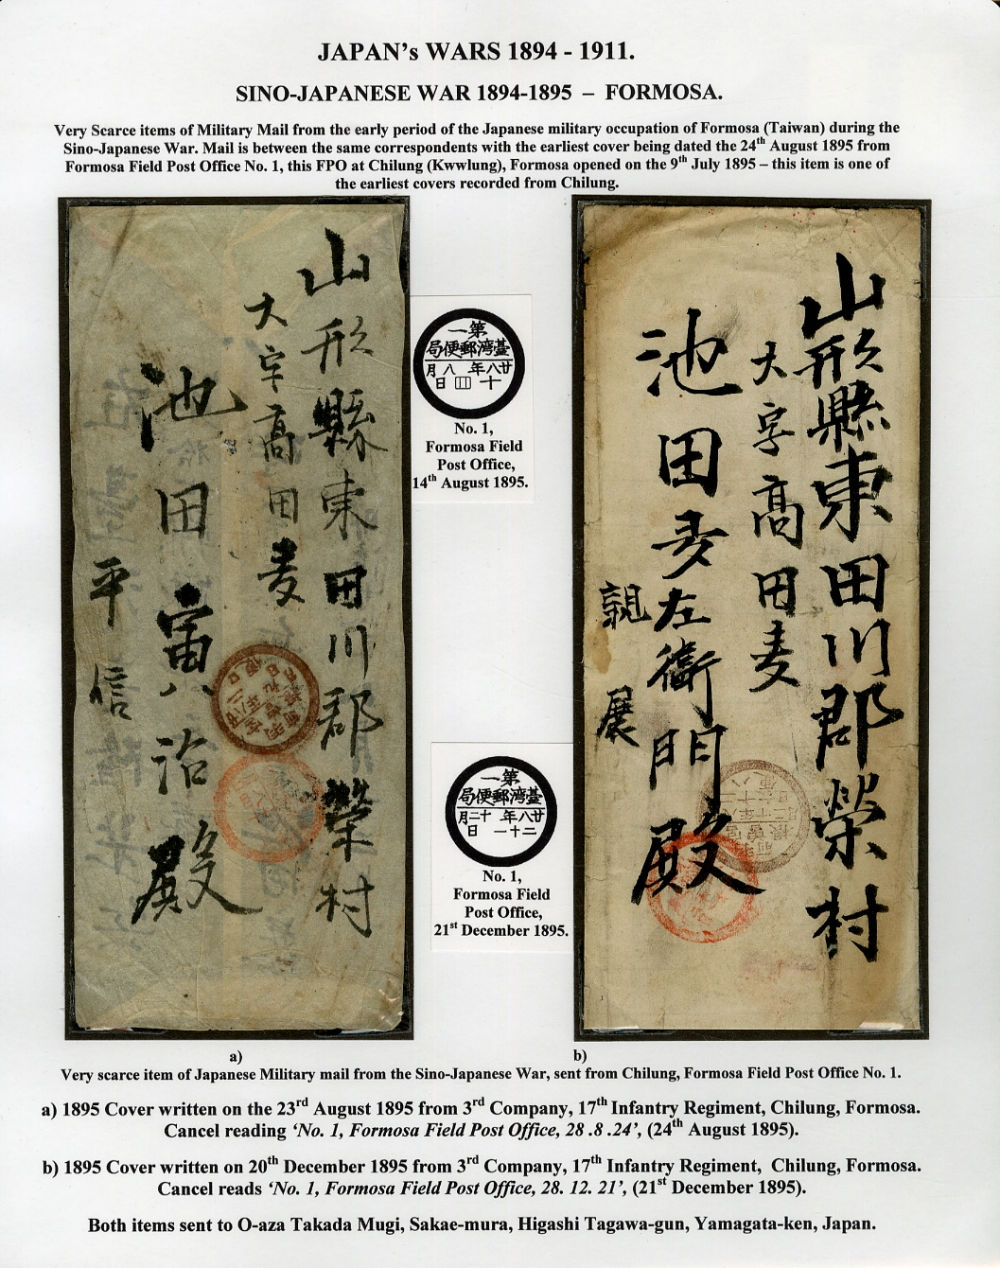 JAPAN's WARS 1894 - 1911.
SINO-JAPANESE WAR 1894-1895 – FORMOSA.
Very Scarce items of Military Mail from the early period of the Japanese military occupation of Formosa (Taiwan) during the
Sino-Japanese War. Mail is between the same correspondents with the earliest cover being dated the 24th August 1895 from
Formosa Field Post Office No. 1, this FPO at Chilung (Kwwlung), Formosa opened on the 9th July 1895 – this item is one of
the earliest covers recorded from Chilung.
山形縣東田川郡榮村
大字高田麦
池田寅治殿
平信
第一
臺灣郵便局
廿八年八月
十四日
No. 1,
Formosa Field
Post Office,
14th August 1895.
第一
臺灣郵便局
廿八年十二月
二十一日
No. 1,
Formosa Field
Post Office,
21st December 1895.
山形縣東田川郡榮村
大字高田麦
池田麦左衛門殿
親展
a)
b)
Very scarce item of Japanese Military mail from the Sino-Japanese War, sent from Chilung, Formosa Field Post Office No. 1.
a) 1895 Cover written on the 23rd August 1895 from 3rd Company, 17th Infantry Regiment, Chilung, Formosa.
Cancel reading 'No. 1, Formosa Field Post Office, 28 .8 .24', (24th August 1895).
b) 1895 Cover written on 20th December 1895 from 3rd Company, 17th Infantry Regiment, Chilung, Formosa.
Cancel reads 'No. 1, Formosa Field Post Office, 28. 12. 21', (21st December 1895).
Both items sent to O-aza Takada Mugi, Sakae-mura, Higashi Tagawa-gun, Yamagata-ken, Japan.